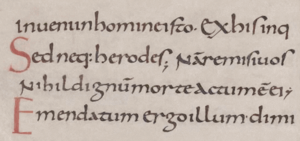 invenuinhomineisto. Exhisinq
Sedneq: herodes; Nāremisiuos
Nihildignūmorteactumē ei;
Emendatum ergo illum dimi